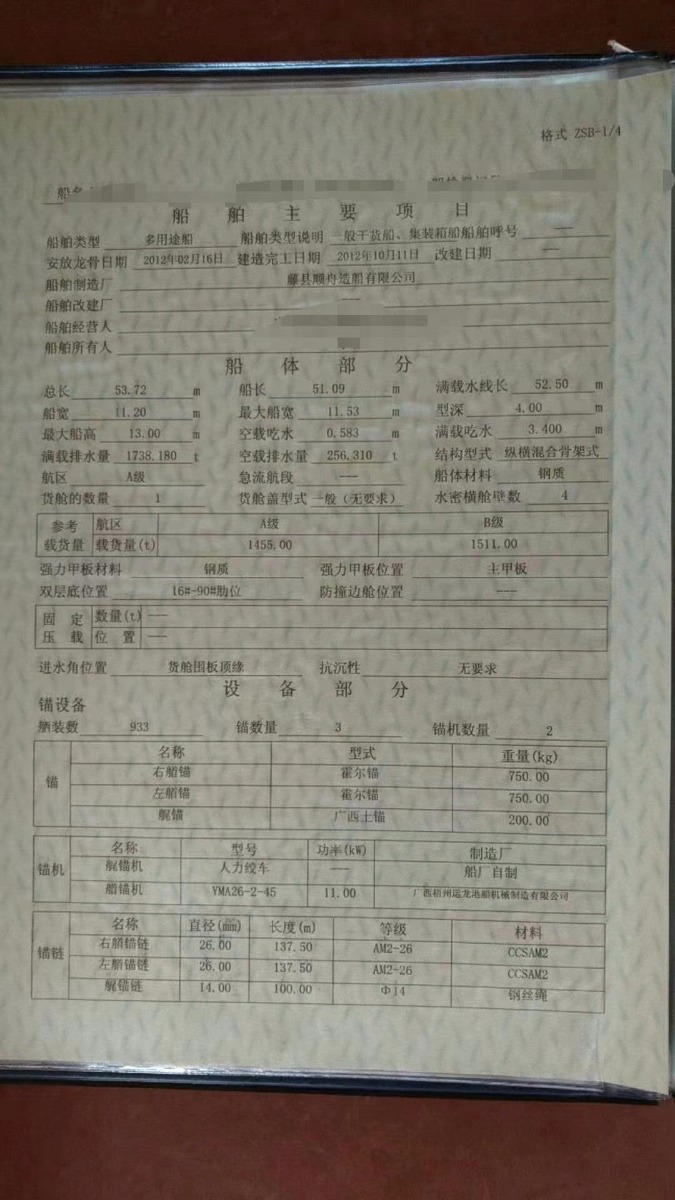 格式 ZSB-1/4
船名
船舶主要项目
船舶类型 多用途船 船舶类型说明 一般干货船、集装箱船 船舶呼号 ——
安放龙骨日期 2012年02月16日 建造完工日期 2012年10月11日 改建日期 ——
船舶制造厂 藤县顺舟造船有限公司
船舶改建厂 ---
船舶经营人
船舶所有人
船体部分
总长 53.72 m 船长 51.09 m 满载水线长 52.50 m
船宽 11.20 m 最大船宽 11.53 m 型深 4.00 m
最大船高 13.00 m 空载吃水 0.583 m 满载吃水 3.400 m
满载排水量 1738.180 t 空载排水量 256.310 t 结构型式 纵横混合骨架式
航区 A级 急流航段 --- 船体材料 钢质
货舱的数量 1 货舱盖型式 一般（无要求） 水密横舱壁数 4
参考载货量 航区 A级 B级
载货量(t) 1455.00 1511.00
强力甲板材料 钢质 强力甲板位置 主甲板
双层底位置 16#-90#肋位 防撞边舱位置 ---
固定压载 数量(t) ---
位置 ---
进水角位置 货舱围板顶缘 抗沉性 无要求
设备部分
锚设备
舾装数 933 锚数量 3 锚机数量 2
锚 名称 型式 重量(kg)
右艏锚 霍尔锚 750.00
左艏锚 霍尔锚 750.00
艉锚 广西土锚 200.00
锚机 名称 型号 功率(kW) 制造厂
艉锚机 人力绞车 --- 船厂自制
艏锚机 YMA26-2-45 11.00 广西梧州运龙港船机械制造有限公司
锚链 名称 直径(mm) 长度(m) 等级 材料
右艏锚链 26.00 137.50 AM2-26 CCSAM2
左艏锚链 26.00 137.50 AM2-26 CCSAM2
艉锚链 14.00 100.00 Φ14 钢丝绳